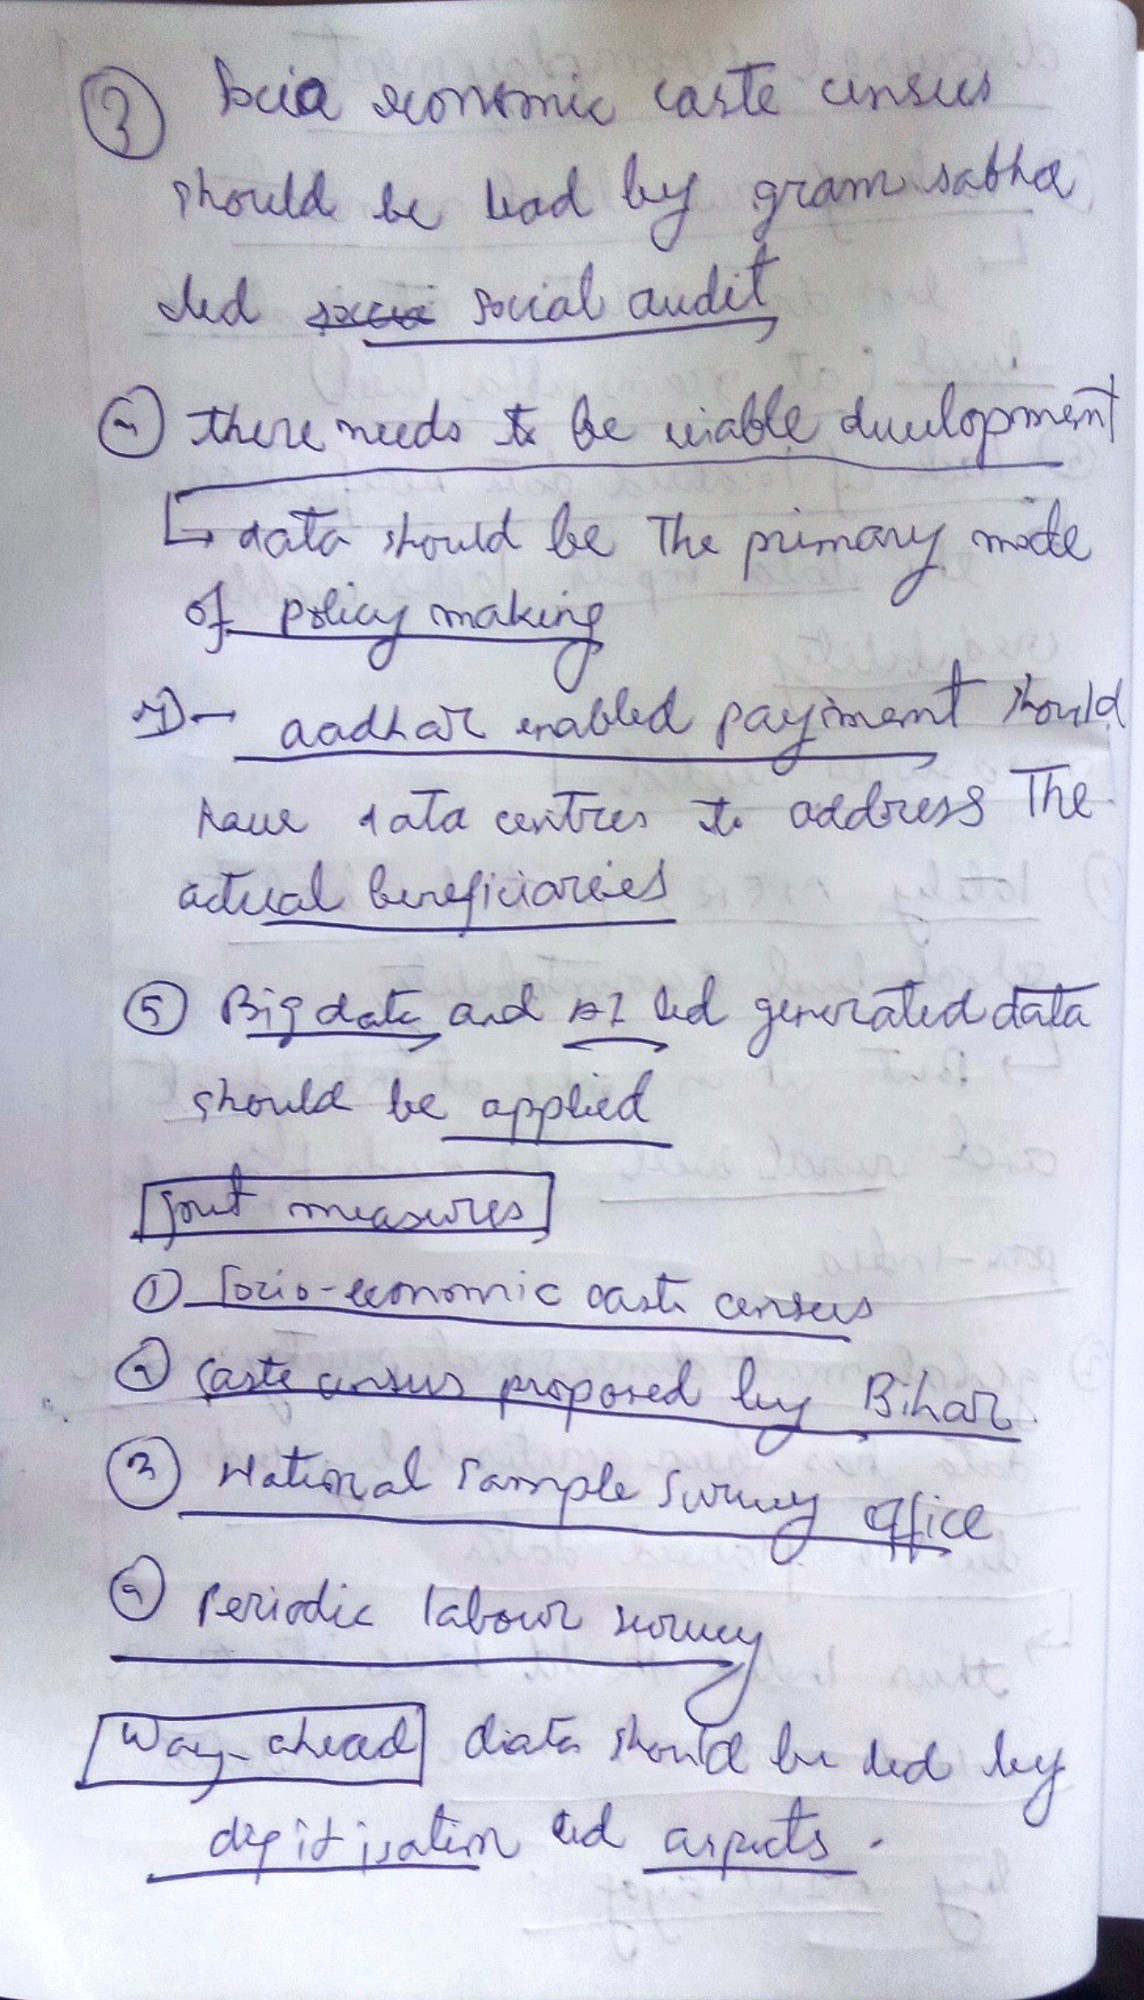 ③ Socia economic caste census
should be lead by gram sabha
led social audit
④ there needs to be viable development
↳ data should be The primary mode
of policy making
→ aadhar enabled payment should
have data centres to address The
actual beneficiaries
⑤ Big data and AI led generated data
should be applied
Govt measures
① Socio-economic caste census
② Caste census proposed by Bihar
③ National Sample Survey office
④ Periodic labour survey
Way-ahead data should be led by
digitisation led aspects.